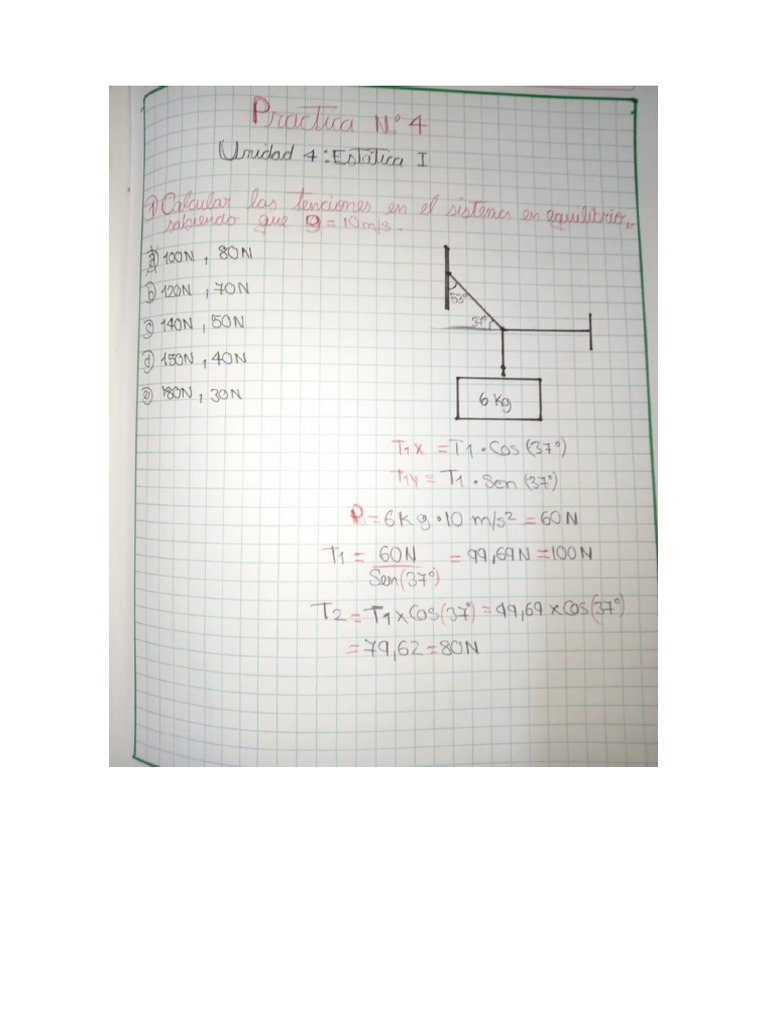 Practica N.º 4
Unidad 4: Estática I
① Calcular las tenciones en el sistema en equilibrio,,
sabiendo que g = 10 m/s.
ⓐ 100N , 80N
ⓑ 120N , 70N
ⓒ 140N , 50N
ⓓ 150N , 40N
ⓔ 180N , 30N
53º
37º
6 Kg
T1x = T1 • Cos (37º)
T1y = T1 • Sen (37º)
P = 6Kg • 10 m/s² = 60N
T1 = 60N / Sen (37º) = 99,69N = 100N
T2 = T1 x Cos (37º) = 49,69 x Cos (37º)
= 79,62 = 80N